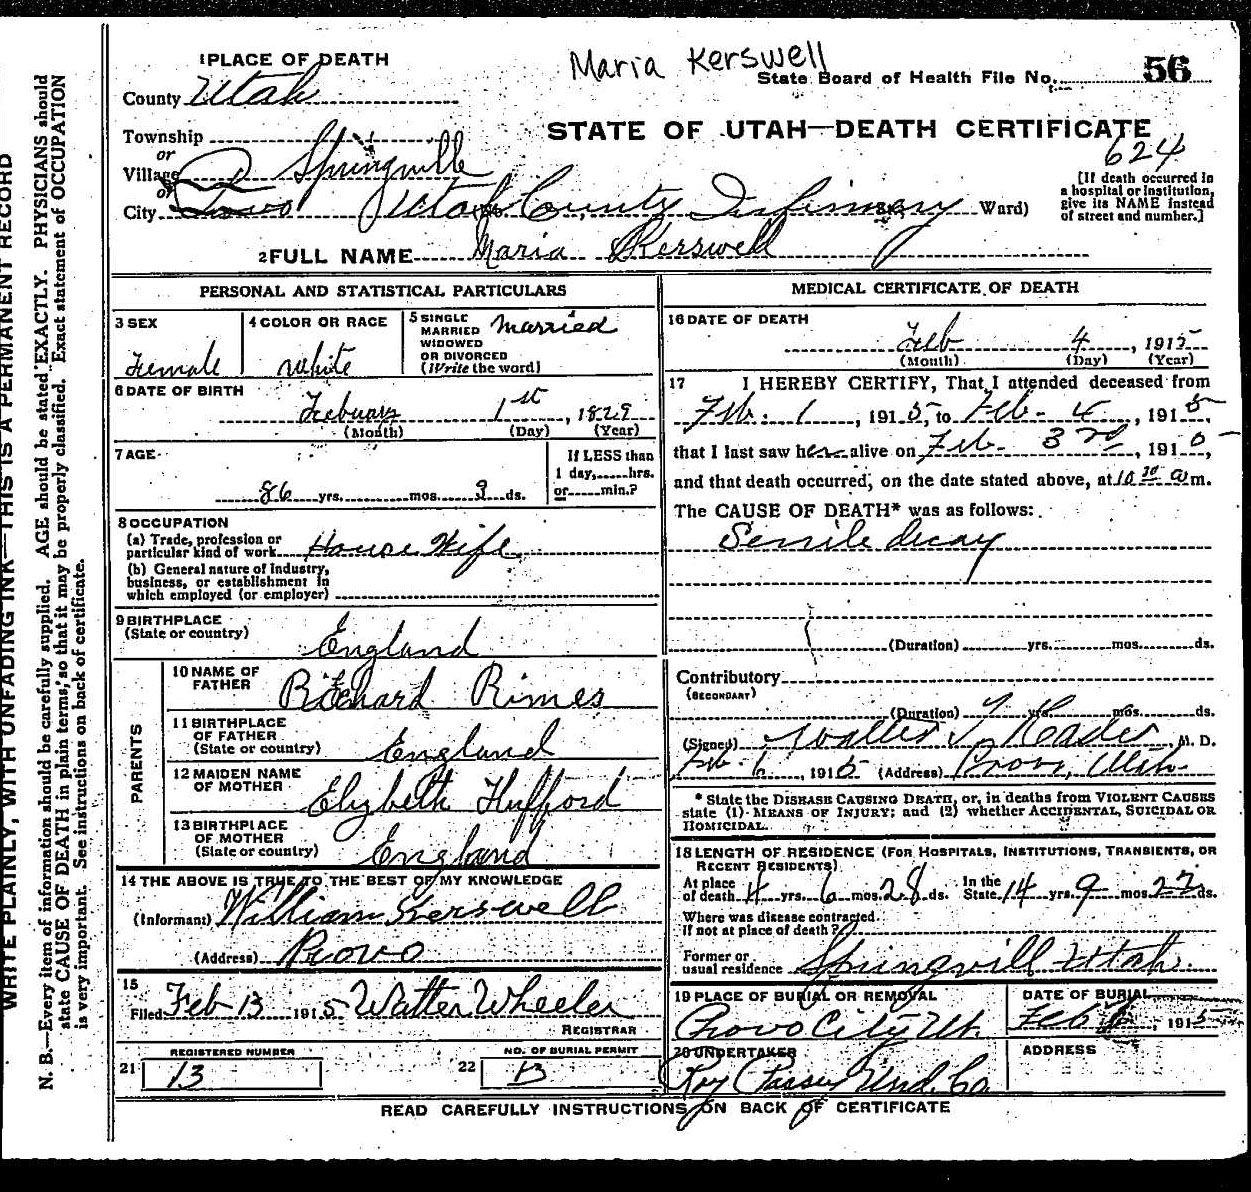 WRITE PLAINLY, WITH UNFADING INK—THIS IS A PERMANENT RECORD
N. B.—Every item of information should be carefully supplied. AGE should be stated EXACTLY. PHYSICIANS should
state CAUSE OF DEATH in plain terms, so that it may be properly classified. Exact statement of OCCUPATION
is very important. See instructions on back of certificate.
Maria Kerswell
1 PLACE OF DEATH
State Board of Health File No. 56
County Utah
STATE OF UTAH—DEATH CERTIFICATE
624
Township
or
Village Springville
or
City Provo Utah County Infirmary Ward)
[If death occurred in
a hospital or institution,
give its NAME instead
of street and number.]
2 FULL NAME Maria Kerswell
PERSONAL AND STATISTICAL PARTICULARS
3 SEX
Female
4 COLOR OR RACE
White
5 SINGLE
MARRIED
WIDOWED
OR DIVORCED
(Write the word)
Married
6 DATE OF BIRTH
February 1st, 1829
(Month) (Day) (Year)
7 AGE
86 yrs. mos. 3 ds.
If LESS than
1 day, hrs.
or min.?
8 OCCUPATION
(a) Trade, profession or
particular kind of work House Wife
(b) General nature of industry,
business, or establishment in
which employed (or employer)
9 BIRTHPLACE
(State or country) England
PARENTS
10 NAME OF
FATHER Richard Rimes
11 BIRTHPLACE
OF FATHER
(State or country) England
12 MAIDEN NAME
OF MOTHER Elizbeth Hufford
13 BIRTHPLACE
OF MOTHER
(State or country) England
14 THE ABOVE IS TRUE TO THE BEST OF MY KNOWLEDGE
(Informant) William Kerswell
(Address) Provo
15
Filed Feb 13 1915 Walter Wheeler
REGISTRAR
21 REGISTERED NUMBER
13
22 NO. OF BURIAL PERMIT
13
MEDICAL CERTIFICATE OF DEATH
16 DATE OF DEATH
Feb 4, 1915
(Month) (Day) (Year)
17 I HEREBY CERTIFY, That I attended deceased from
Feb. 1, 1915, to Feb - 4, 1915,
that I last saw her alive on Feb - 3rd, 1915,
and that death occurred, on the date stated above, at 10 30 a m.
The CAUSE OF DEATH* was as follows:
Senile decay
(Duration) yrs. mos. ds.
Contributory
(SECONDARY)
(Duration) yrs. mos. ds.
(Signed) Walter T Hasler, M. D.
Feb. 6, 1915 (Address) Provo, Utah.
* State the DISEASE CAUSING DEATH, or, in deaths from VIOLENT CAUSES
state (1) MEANS OF INJURY; and (2) whether ACCIDENTAL, SUICIDAL OR
HOMICIDAL.
18 LENGTH OF RESIDENCE (FOR HOSPITALS, INSTITUTIONS, TRANSIENTS, OR
RECENT RESIDENTS)
At place
of death 4 yrs. 6 mos. 28 ds. In the
State 14 yrs. 9 mos. 27 ds.
Where was disease contracted
if not at place of death?
Former or
usual residence Springvill Utah.
19 PLACE OF BURIAL OR REMOVAL
Provo City Ut.
DATE OF BURIAL
Feb 6, 1915
20 UNDERTAKER
Roy Passey Und. Co.
ADDRESS
READ CAREFULLY INSTRUCTIONS ON BACK OF CERTIFICATE